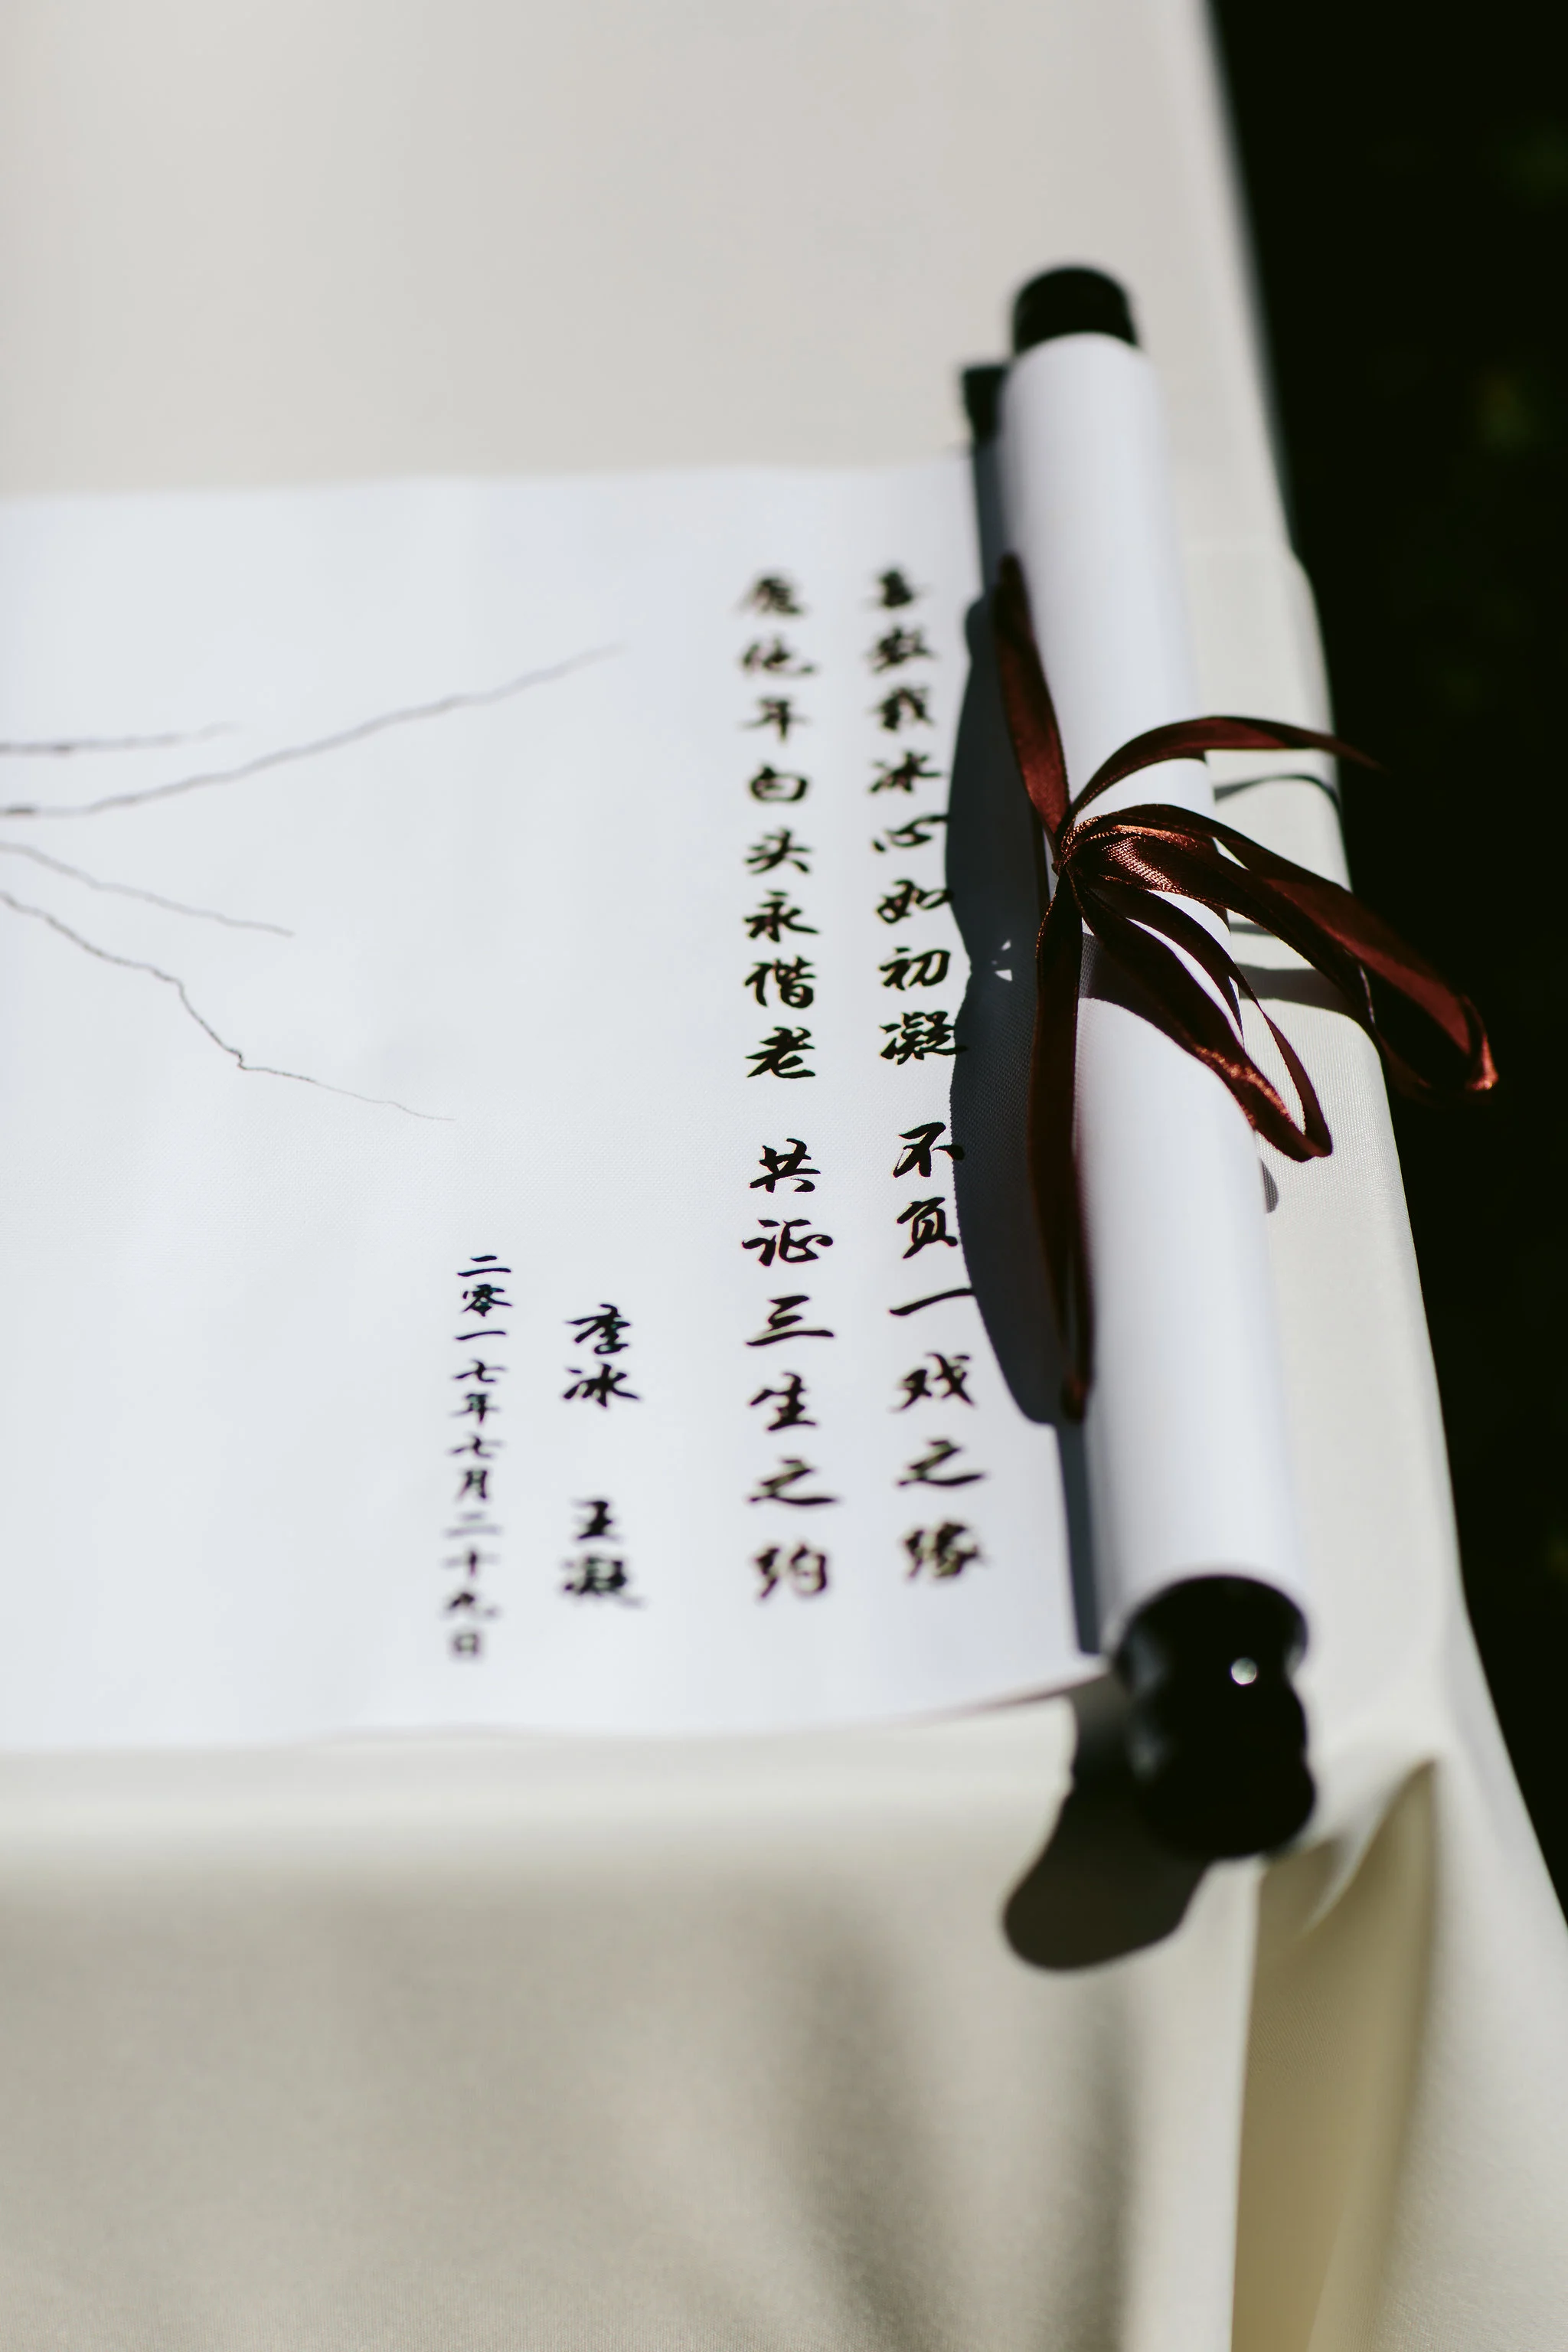 喜我冰心如初凝 不负一戏之缘
愿他年白头永偕老 共证三生之约
李冰 王凝
二零一七年七月二十九日